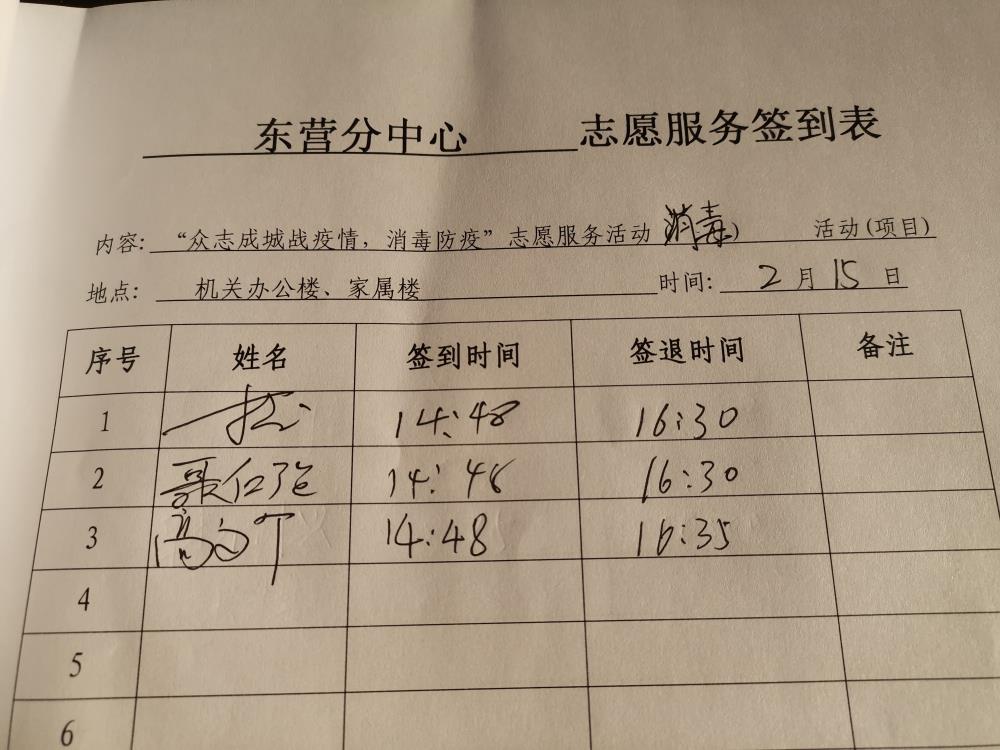 东营分中心 志愿服务签到表
内容: “众志成城战疫情，消毒防疫”志愿服务活动 消毒) 活动(项目)
地点: 机关办公楼、家属楼 时间: 2月15日
序号 姓名 签到时间 签退时间 备注
1 14:48 16:30
2 14:46 16:30
3 14:48 16:35
4
5
6